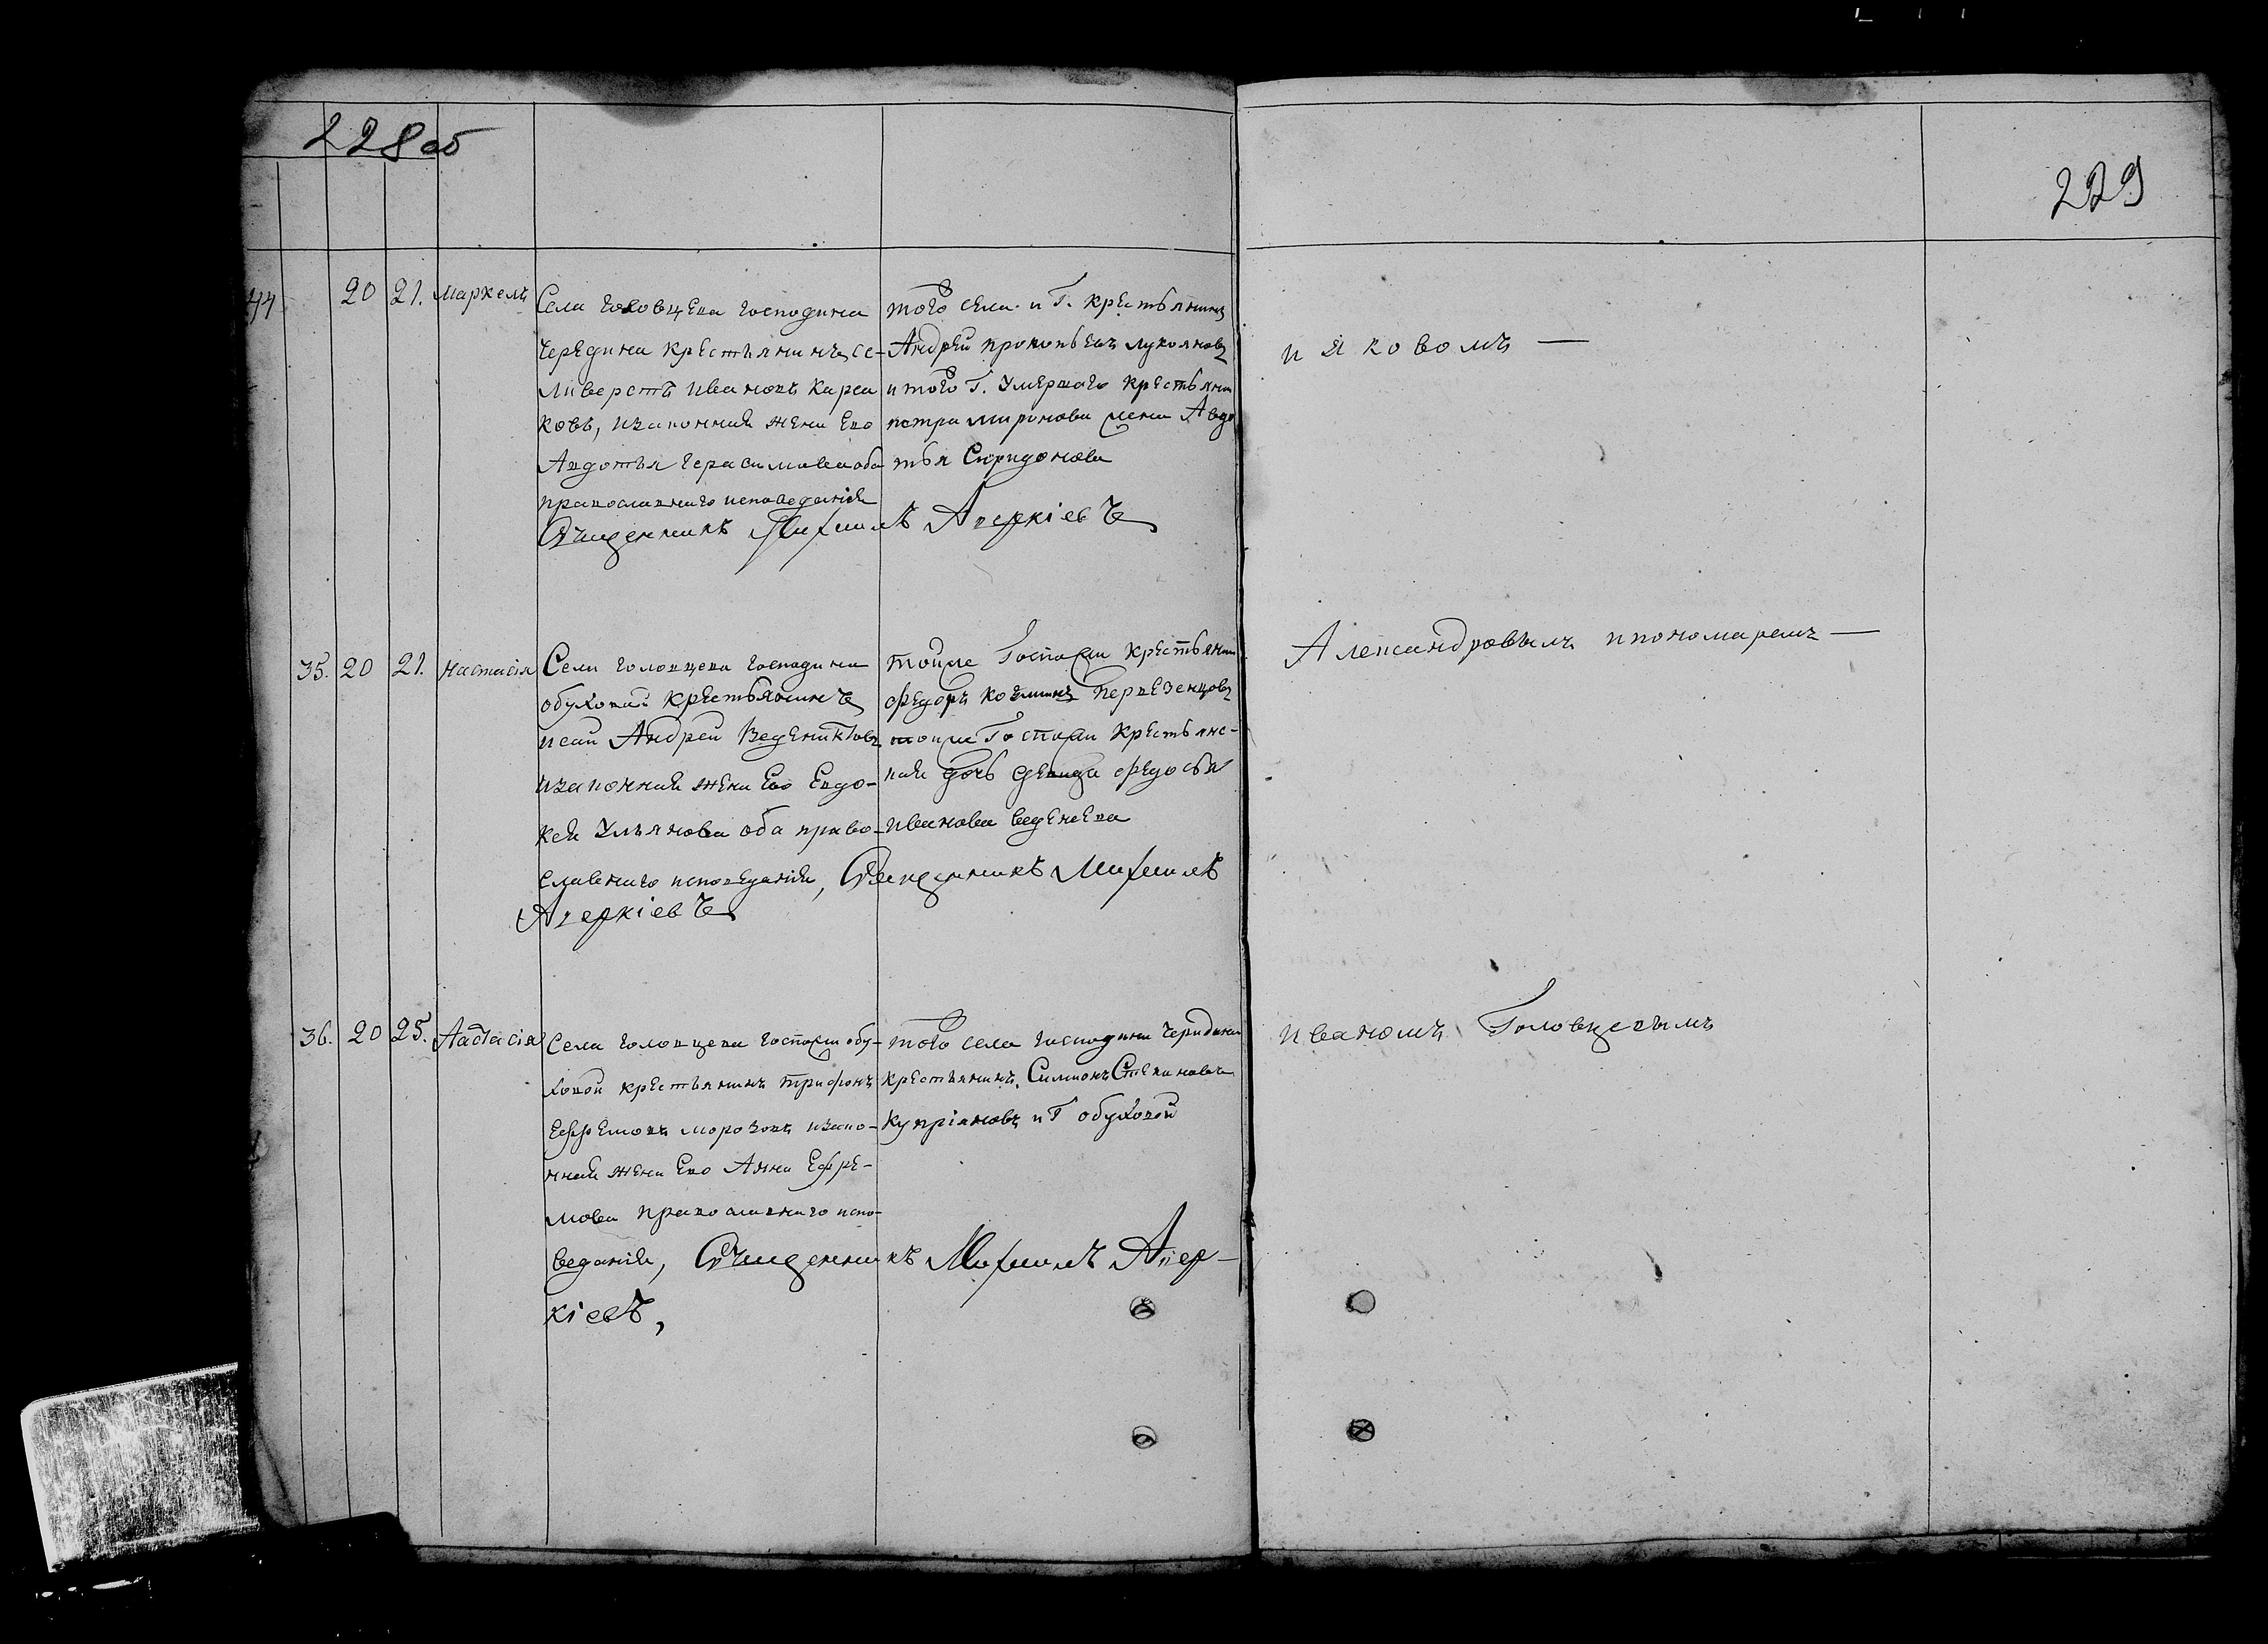 228 об
229
44 20 21. Маркелъ
Села Головцева Господина
Чередина крестьянинъ Се-
ливерстъ Ивановъ Карса
ковъ, изаконная жена Его
Авдотья Герасимова оба
православнаго исповеданія
Священникъ Михаилъ Аверкіевъ
того села и Г. крестьянинъ
Андрей прокопьевъ лукояновъ
и того Г. Умершаго крестьянин
петра миронова жена Авдо
тья Спиридонова
и Яковомъ —
35. 20 21. Настасія
Села Головцева Господина
обуховай крестьянинъ
исаи Андреи Ведениктовъ
изаконная жена Его Евдо-
кея Ульянова оба право-
славнаго исповеданія, Священникъ Михаилъ
Аверкіевъ
тоиже Госпожи крестьянин
федоръ козминъ Первезенцовъ
тоиже Госпожи крестьянс-
кая дочь девица федосья
иванова веденеева
Александровымъ ипономаремъ —
36. 20 25. Настасія
Села Головцева Госпожи обу-
ховой крестьянинъ трифонъ
Ефремовъ морозовъ изако-
нная жена Его Анна Ефре-
мова православнаго испо-
веданія, Священникъ Михаилъ Авер-
кіевъ,
того села господина Чередина
крестьянинъ Симионъ Степановъ
купріяновъ и Г обуховой
иваномъ Головцевымъ